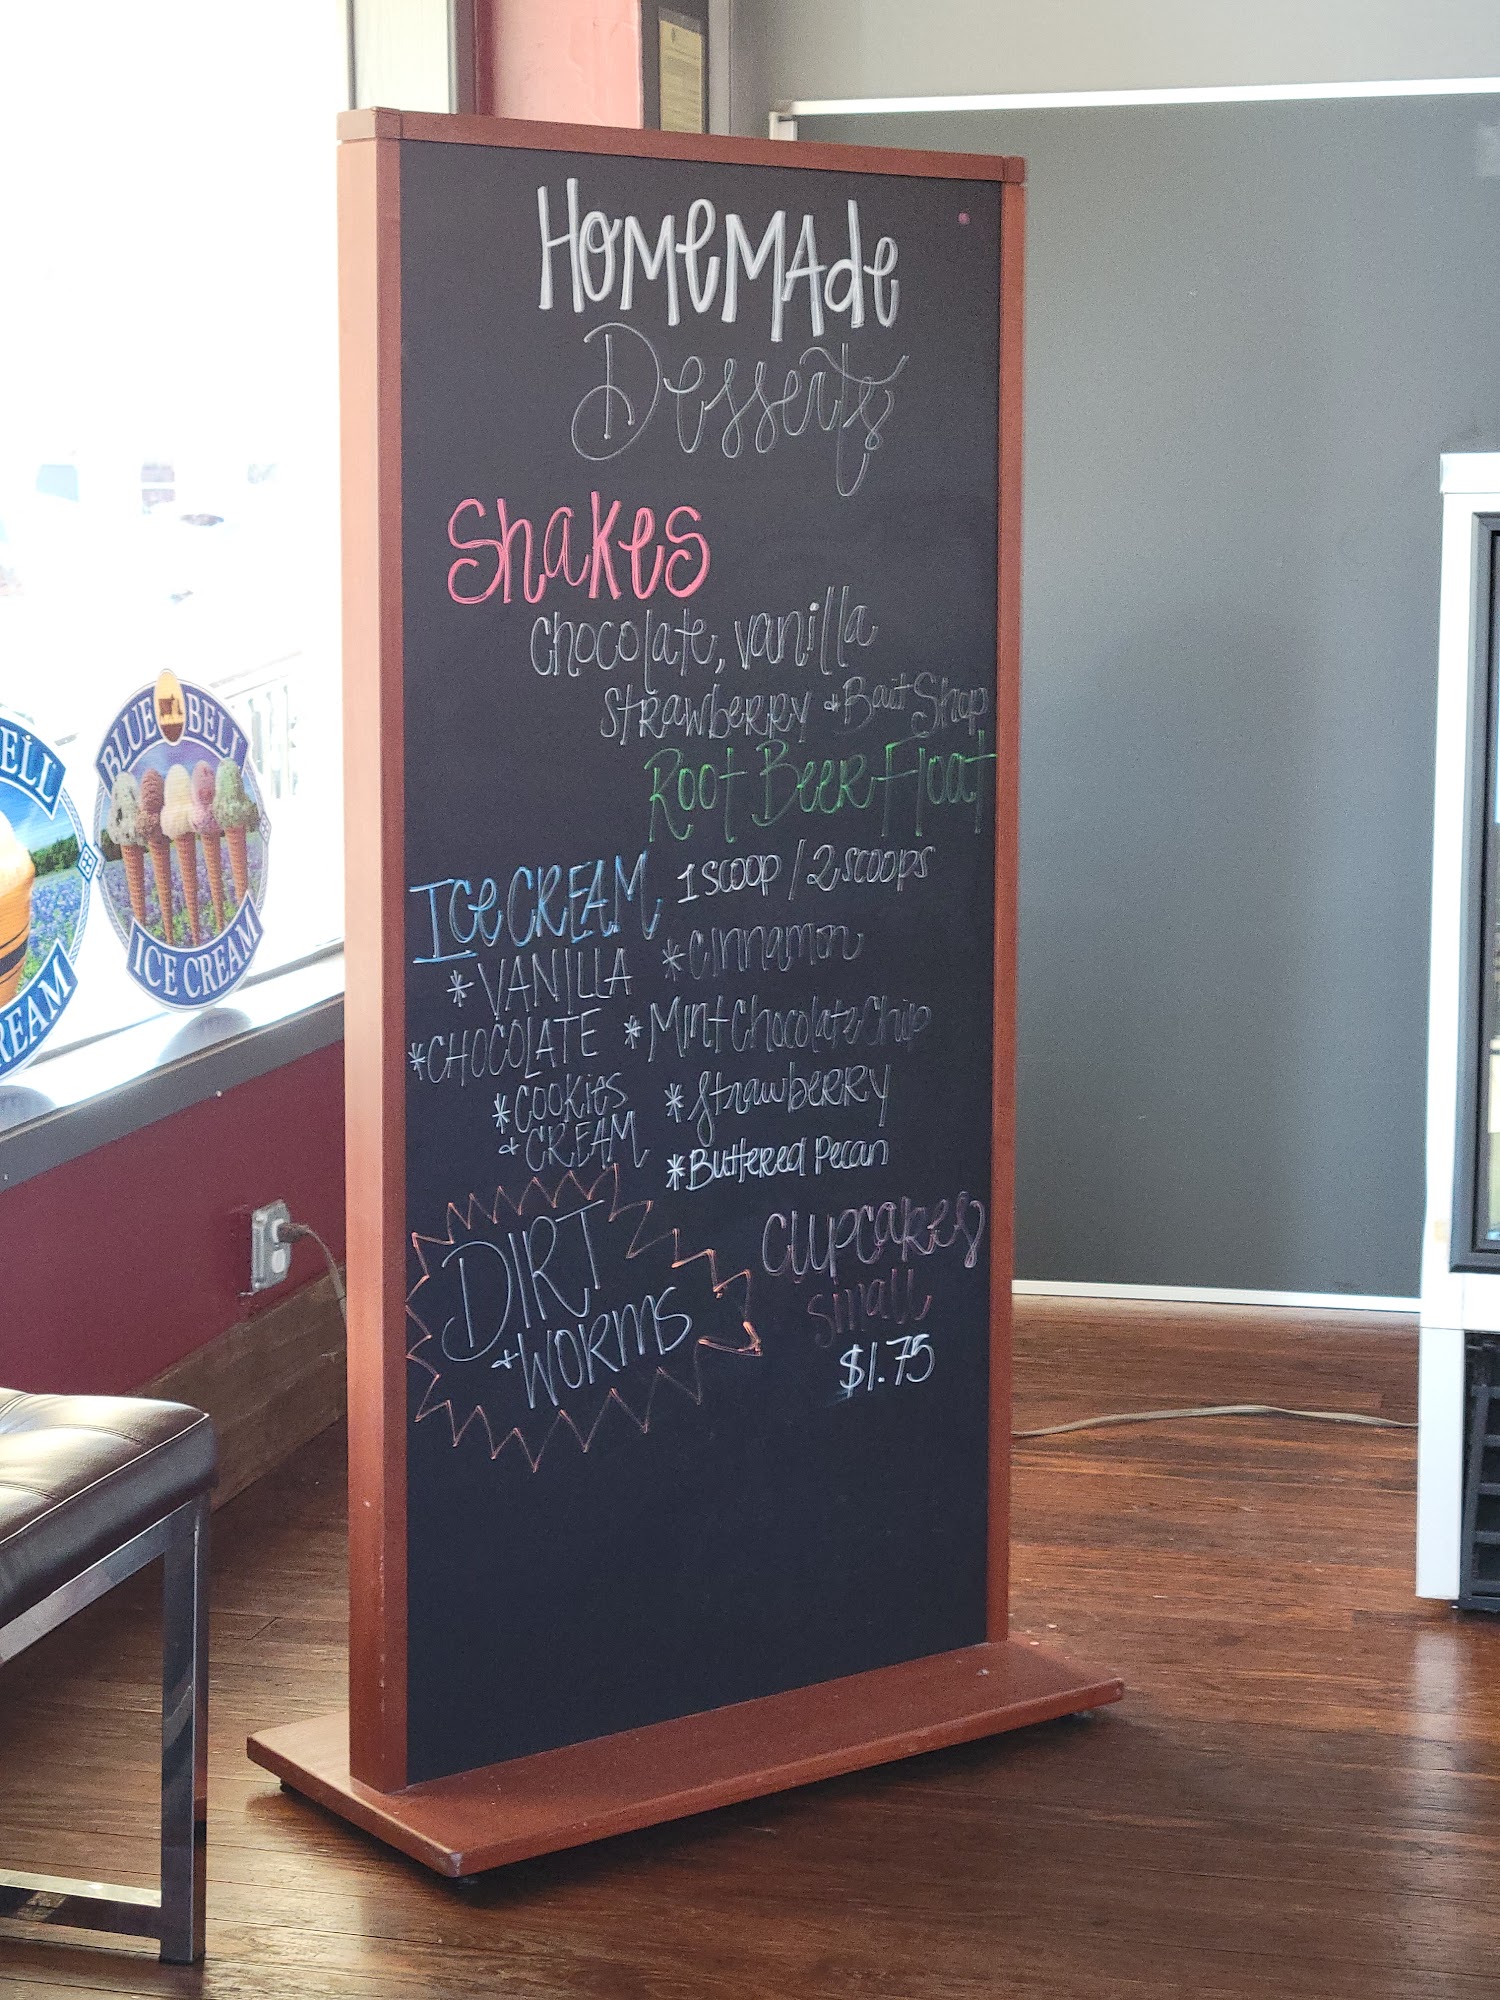 Homemade
Desserts
Shakes
chocolate, vanilla
strawberry & Bait Shop
Root Beer Float
Ice CREAM 1 scoop / 2 scoops
*VANILLA *cinnamon
*CHOCOLATE *Mint Chocolate Chip
*COOKIES *Strawberry
& CREAM *Buttered Pecan
DIRT
& WORMS
cupcakes
small
$1.75
BLUE BELL
ICE CREAM
ELL
REAM